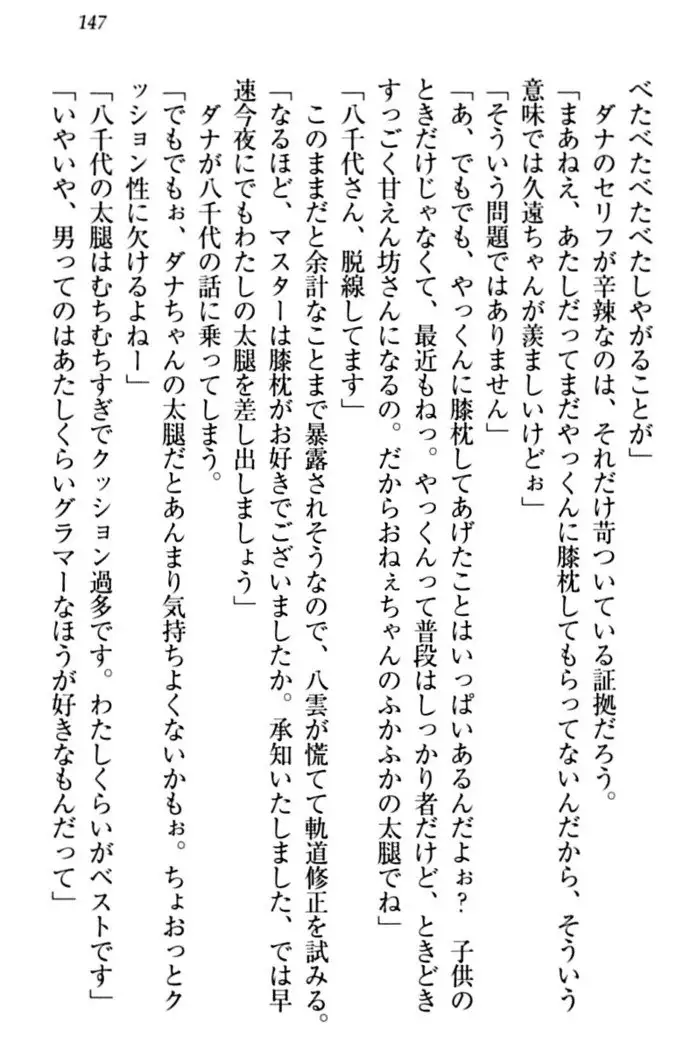 147
べたべたべたべたしやがることが」
　ダナのセリフが辛辣なのは、それだけ苛ついている証拠だろう。
「まあねえ、あたしだってまだやっくんに膝枕してもらってないんだから、そういう
意味では久遠ちゃんが羨ましいけどぉ」
「そういう問題ではありません」
「あ、でもでも、やっくんに膝枕してあげたことはいっぱいあるんだよぉ？　子供の
ときだけじゃなくて、最近もねっ。やっくんって普段はしっかり者だけど、ときどき
すっごく甘えん坊さんになるの。だからおねぇちゃんのふかふかの太腿でね」
「八千代さん、脱線してます」
　このままだと余計なことまで暴露されそうなので、八雲が慌てて軌道修正を試みる。
「なるほど、マスターは膝枕がお好きでございましたか。承知いたしました、では早
速今夜にでもわたしの太腿を差し出しましょう」
　ダナが八千代の話に乗ってしまう。
「でもでもぉ、ダナちゃんの太腿だとあんまり気持ちよくないかもぉ。ちょおっとク
ッション性に欠けるよねー」
「八千代の太腿はむちむちすぎでクッション過多です。わたしくらいがベストです」
「いやいや、男ってのはあたしくらいグラマーなほうが好きなもんだって」